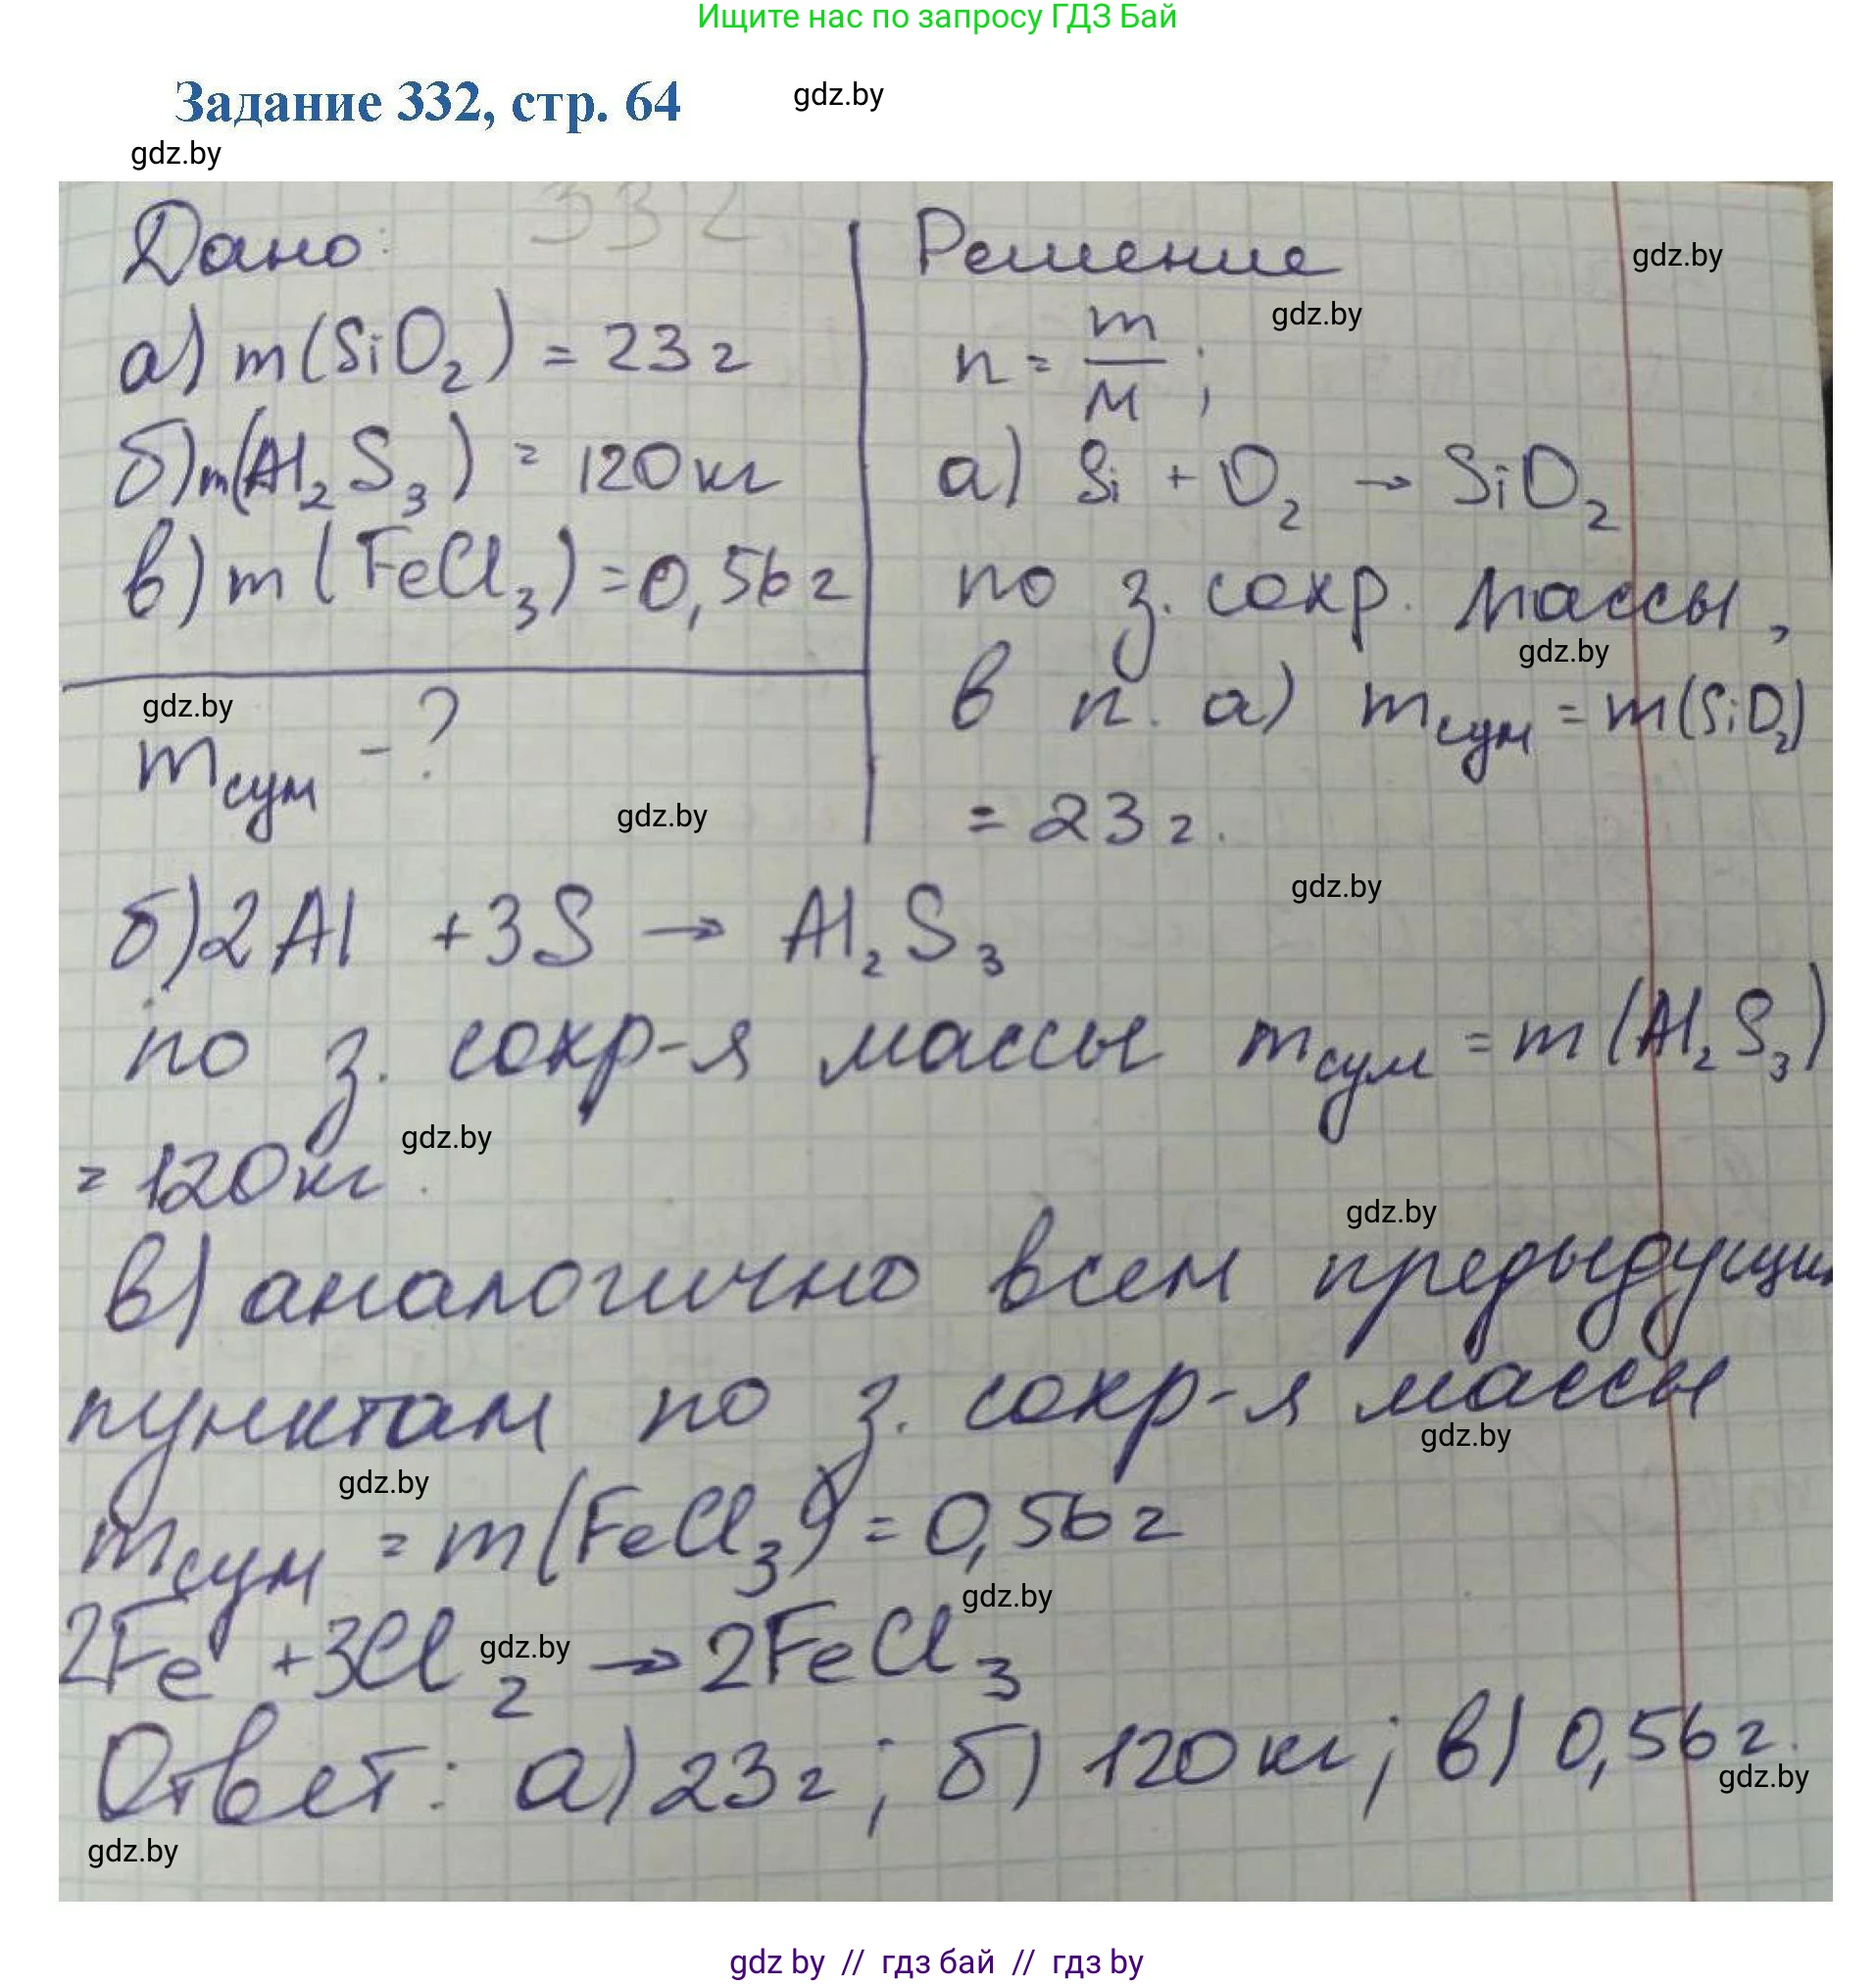 Ищите нас по запросу ГДЗ Бай
Задание 332, стр. 64
gdz.by
gdz.by
332
Дано:
а) m(SiO₂) = 23 г
б) m(Al₂S₃) = 120 кг
в) m(FeCl₃) = 0,56 г
gdz.by
mсум - ?
gdz.by
Решение
gdz.by
gdz.by
n = m/M ;
а) Si + O₂ → SiO₂
по з. сохр. массы,
gdz.by
в п. а) mсум = m(SiO₂)
= 23 г.
gdz.by
б) 2Al + 3S → Al₂S₃
по з. сохр-я массы mсум = m(Al₂S₃)
gdz.by
= 120 кг.
gdz.by
в) аналогично всем предыдущим
пунктам по з. сохр-я массы
gdz.by
gdz.by
mсум = m(FeCl₃) = 0,56 г
gdz.by
2Fe + 3Cl₂ → 2FeCl₃
gdz.by
Ответ: а) 23 г; б) 120 кг; в) 0,56 г.
gdz.by
gdz.by
gdz by // гдз бай // гдз by